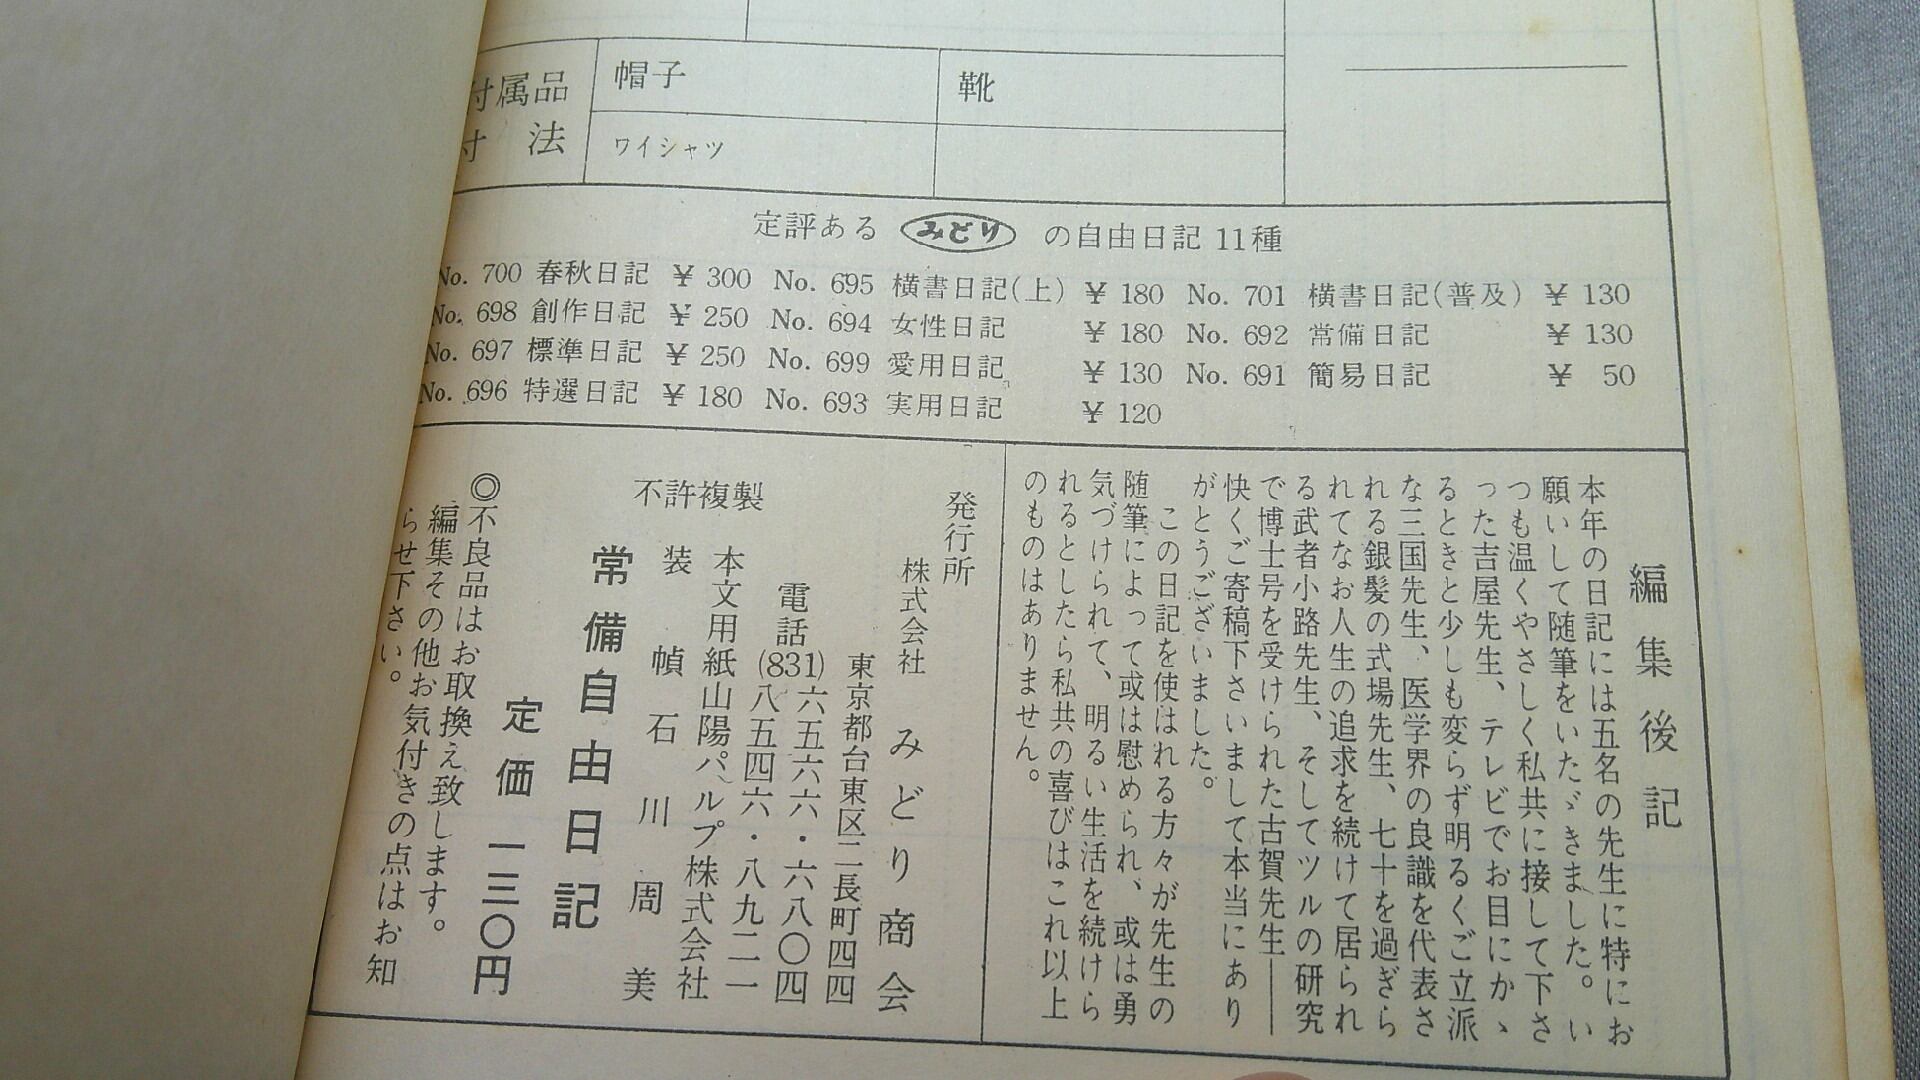 付属品
寸 法
帽子
靴
ワイシャツ
定評ある みどり の自由日記 11種
No. 700 春秋日記 ¥ 300 No. 695 横書日記(上) ¥ 180 No. 701 横書日記(普及) ¥ 130
No. 698 創作日記 ¥ 250 No. 694 女性日記 ¥ 180 No. 692 常備日記 ¥ 130
No. 697 標準日記 ¥ 250 No. 699 愛用日記 ¥ 130 No. 691 簡易日記 ¥ 50
No. 696 特選日記 ¥ 180 No. 693 実用日記 ¥ 120
編集後記
本年の日記には五名の先生に特にお
願いして随筆をいたゞきました。い
つも温くやさしく私共に接して下さ
った吉屋先生、テレビでお目にかゝ
るときと少しも変らず明るくご立派
な三国先生、医学界の良識を代表さ
れる銀髪の式場先生、七十を過ぎら
れてなお人生の追求を続けて居られ
る武者小路先生、そしてツルの研究
で博士号を受けられた古賀先生――
快くご寄稿下さいまして本当にあり
がとうございました。
この日記を使はれる方々が先生の
随筆によって或は慰められ、或は勇
気づけられて、明るい生活を続けら
れるとしたら私共の喜びはこれ以上
のものはありません。
発行所
株式会社 みどり商会
東京都台東区二長町四四
電話(831)六五六六・六八〇四
八五四六・八九二一
本文用紙山陽パルプ株式会社
装 幀 石 川 周 美
不許複製
常備自由日記
定価 一三〇円
◎不良品はお取換え致します。
編集その他お気付きの点はお知
らせ下さい。